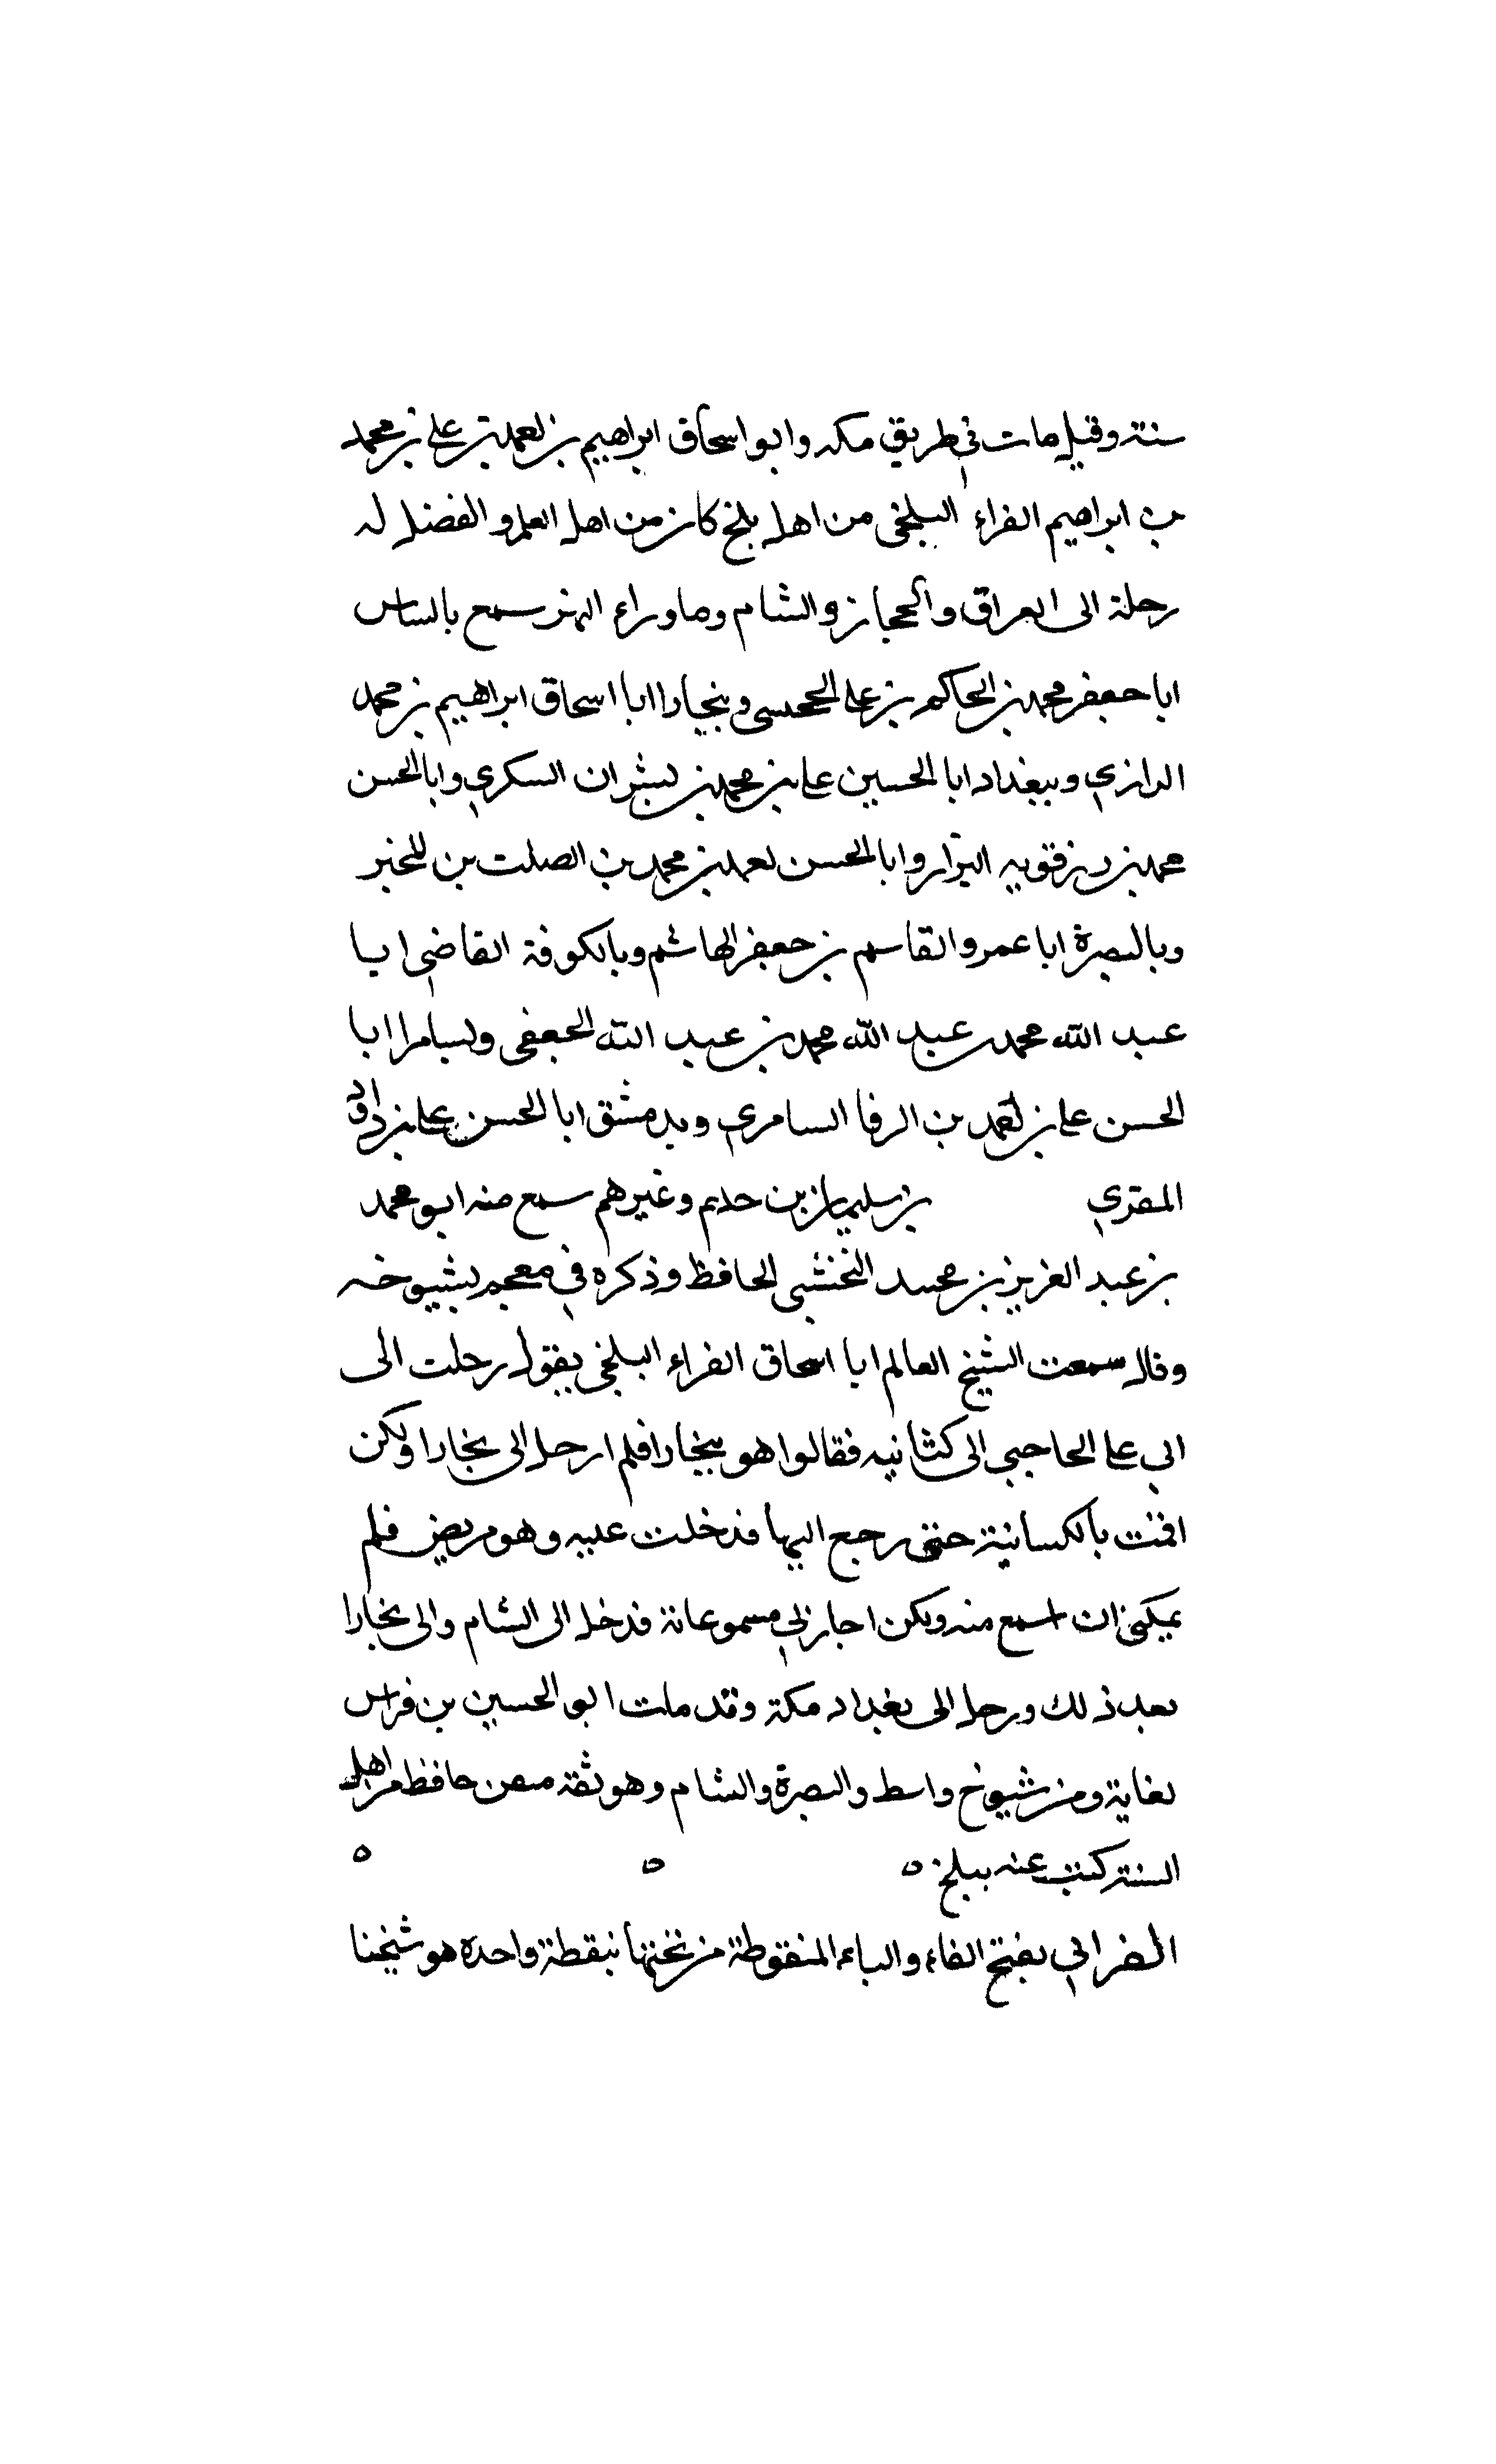 سنة وقيل مات في طريق مكه وابو اسحاق ابراهيم بن احمد بن علي بن محمد
بن ابراهيم الفراء البلخي من اهل بلخ كان من اهل العلم والفضل له
رحلة الى العراق والحجاز والشام وما وراء النهر سمع بالساس
ابا جعفر محمد بن الحاكم بن علي وببخارا ابا اسحاق ابراهيم بن محمد
الرازي وببغداد ابا الحسين علي بن محمد بن بشران السكري وابا الحسن
محمد بن رزقويه البزار وابا الحسن احمد بن محمد بن الصلت بن المجبر
وبالبصرة ابا عمر والقاسم بن جعفر الهاشم وبالكوفة القاضي ابا
عبد الله محمد بن عبد الله محمد بن عبد الله الجعفي وبسامرا ابا
الحسن علي بن احمد بن الرفا السامري وبدمشق ابا الحسن علي بن داود
المقري بن سليمان بن حذيم وغيرهم سمع منه ابو محمد
بن عبد العزيز بن محمد النخشبي الحافظ وذكره في معجم شيوخه
وقال سمعت الشيخ العالم ابا اسحاق الفراء البلخي يقول رحلت الى
ابي علي الحاجبي الى كشانيه فقالوا هو ببخارا فلم ارحل الى بخارا ولكن
اقمت بالكسانية حتى رجع اليها فدخلت عليه وهو مريض فلم
يمكني ان اسمع منه ولكن اجاز لي مسموعاته فدخل الى الشام والى بخارا
بعد ذلك ورحل الى بغداد مكة وقد مات ابو الحسين بن فراس
لغاية ومن شيوخ واسط والبصرة والشام وهو ثقة متقن حافظ من اهل
السنة كتبت عنه ببلخ ه ه ه
الفرابي بفتح الفاء والباء المنقوطة من تحتها بنقطة واحدة هو شيخنا